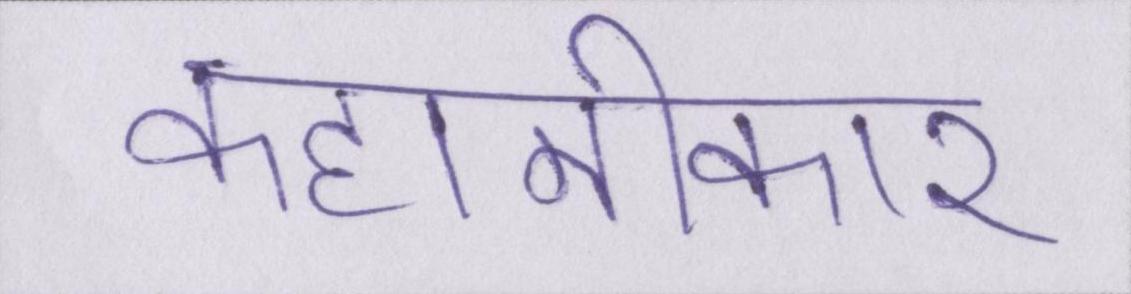 कहानीकार